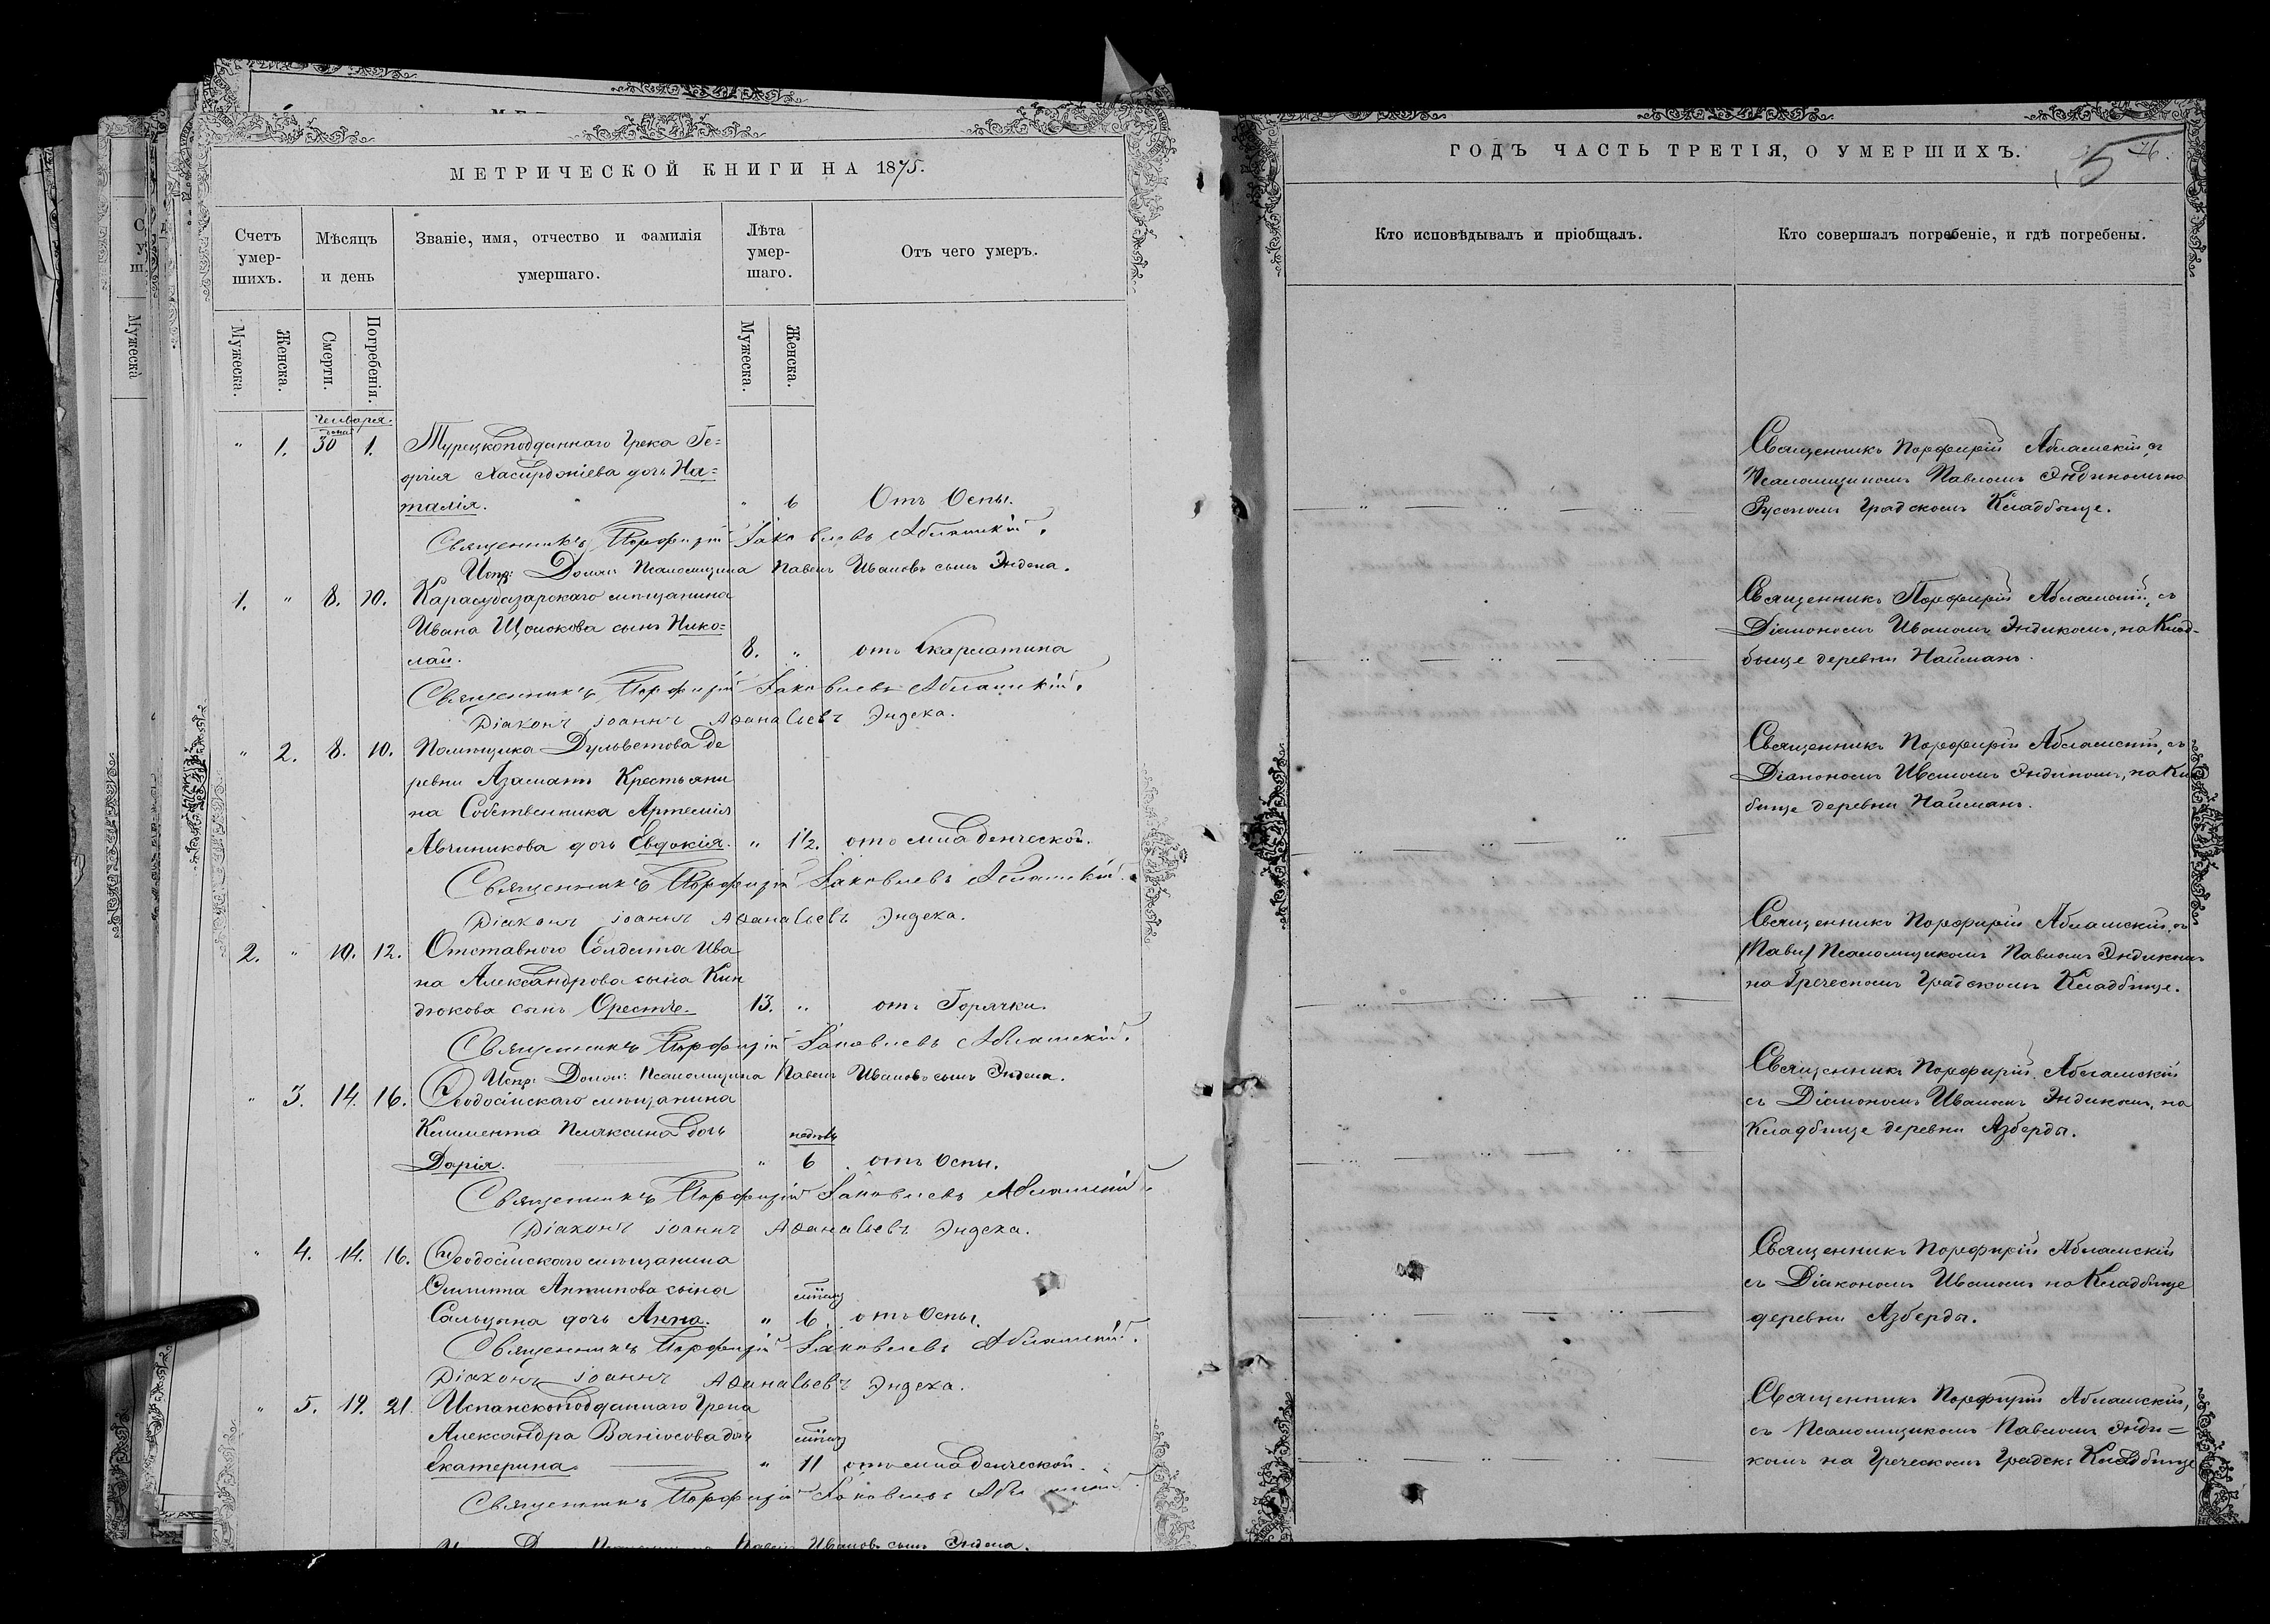 МЕТРИЧЕСКОЙ КНИГИ НА 1875.
Счетъ умер-шихъ.
Мѣсяцъ и день
Званіе, имя, отчество и фамилія умершаго.
Лѣта умер-шаго.
Отъ чего умеръ.
Мужеска.
Женска.
Смерти.
Погребенія.
Мужеска.
Женска.
Генваря.
" 1. 30 1. Турецкоподданнаго Грека Ге=
оргія Хасирджіева дочь На=
талія. " 6 Отъ Оспы.
Священникъ Порфирій Іаковлевъ Абламскій.
Испр: Долж: Псаломщика Павелъ Ивановъ сынъ Эндека.
1. " 8. 10. Карасубазарскаго мѣщанина
Ивана Щолокова сынъ Нико=
лай. 8. " отъ Скарлатина
Священникъ Порфирій Іаковлевъ Абламскій.
Діаконъ Іоаннъ Аѳанасьевъ Эндека.
" 2. 8. 10. Помѣщика Дульветова де
ревни Азаматъ Крестьяни
на Собственника Артемія
Авчиникова дочь Евдокія. " 1½. отъ младенческой.
Священникъ Порфирій Іаковлевъ Абламскій.
Діаконъ Іоаннъ Аѳанасьевъ Эндека.
2. " 10. 12. Отставного Солдата Ива
на Александрова сына Кин
дюкова сынъ Орестъ. 13. " отъ Горячки.
Священникъ Порфирій Іаковлевъ Абламскій.
Испр: Долж: Псаломщика Павелъ Ивановъ сынъ Эндека.
" 3. 14. 16. Ѳеодосійскаго мѣщанина
Климента Плаксина дочь недѣль
Дарія. " 6 отъ Оспы.
Священникъ Порфирій Іаковлевъ Абламскій.
Діаконъ Іоаннъ Аѳанасьевъ Эндека.
" 4. 14. 16. Ѳеодосійскаго мѣщанина
Антипова сына
Сальцына дочь Анна. " 6. отъ Оспы.
Священникъ Порфирій Іаковлевъ Абламскій.
Діаконъ Іоаннъ Аѳанасьевъ Эндека.
" 5. 19. 21. Испанскоподданнаго Грека
Александра Ваніосова дочь
Екатерина " 11 отъ младенческой.
Священникъ Порфирій Іаковлевъ Абламскій
Павелъ Ивановъ сынъ Эндека.
ГОДЪ ЧАСТЬ ТРЕТІЯ, О УМЕРШИХЪ.
5 76.
Кто исповѣдывалъ и пріобщалъ.
Кто совершалъ погребеніе, и гдѣ погребены.
Священникъ Порфирій Абламскій, съ
Псаломщикомъ Павломъ Эндикомъ на
Русскомъ Градскомъ Кладбище.
Священникъ Порфирій Абламскій, съ
Діакономъ Иваномъ Эндикомъ, на Клад-
бище деревни Найманъ.
Священникъ Порфирій Абламскій, съ
Діакономъ Иваномъ Эндикомъ, на Кла
бище деревни Найманъ.
Священникъ Порфирій Абламскій, съ
Псаломщикомъ Павломъ Эндикомъ
на Греческомъ Градскомъ Кладбище.
Священникъ Порфирій Абламскій
съ Діакономъ Иваномъ Эндикомъ, на
Кладбище деревни Азберды.
Священникъ Порфирій Абламскій
съ Діакономъ Иваномъ на Кладбище
деревни Азберды.
Священникъ Порфирій Абламскій,
съ Псаломщикомъ Павломъ Энди=
комъ на Греческомъ Градск: Кладбище